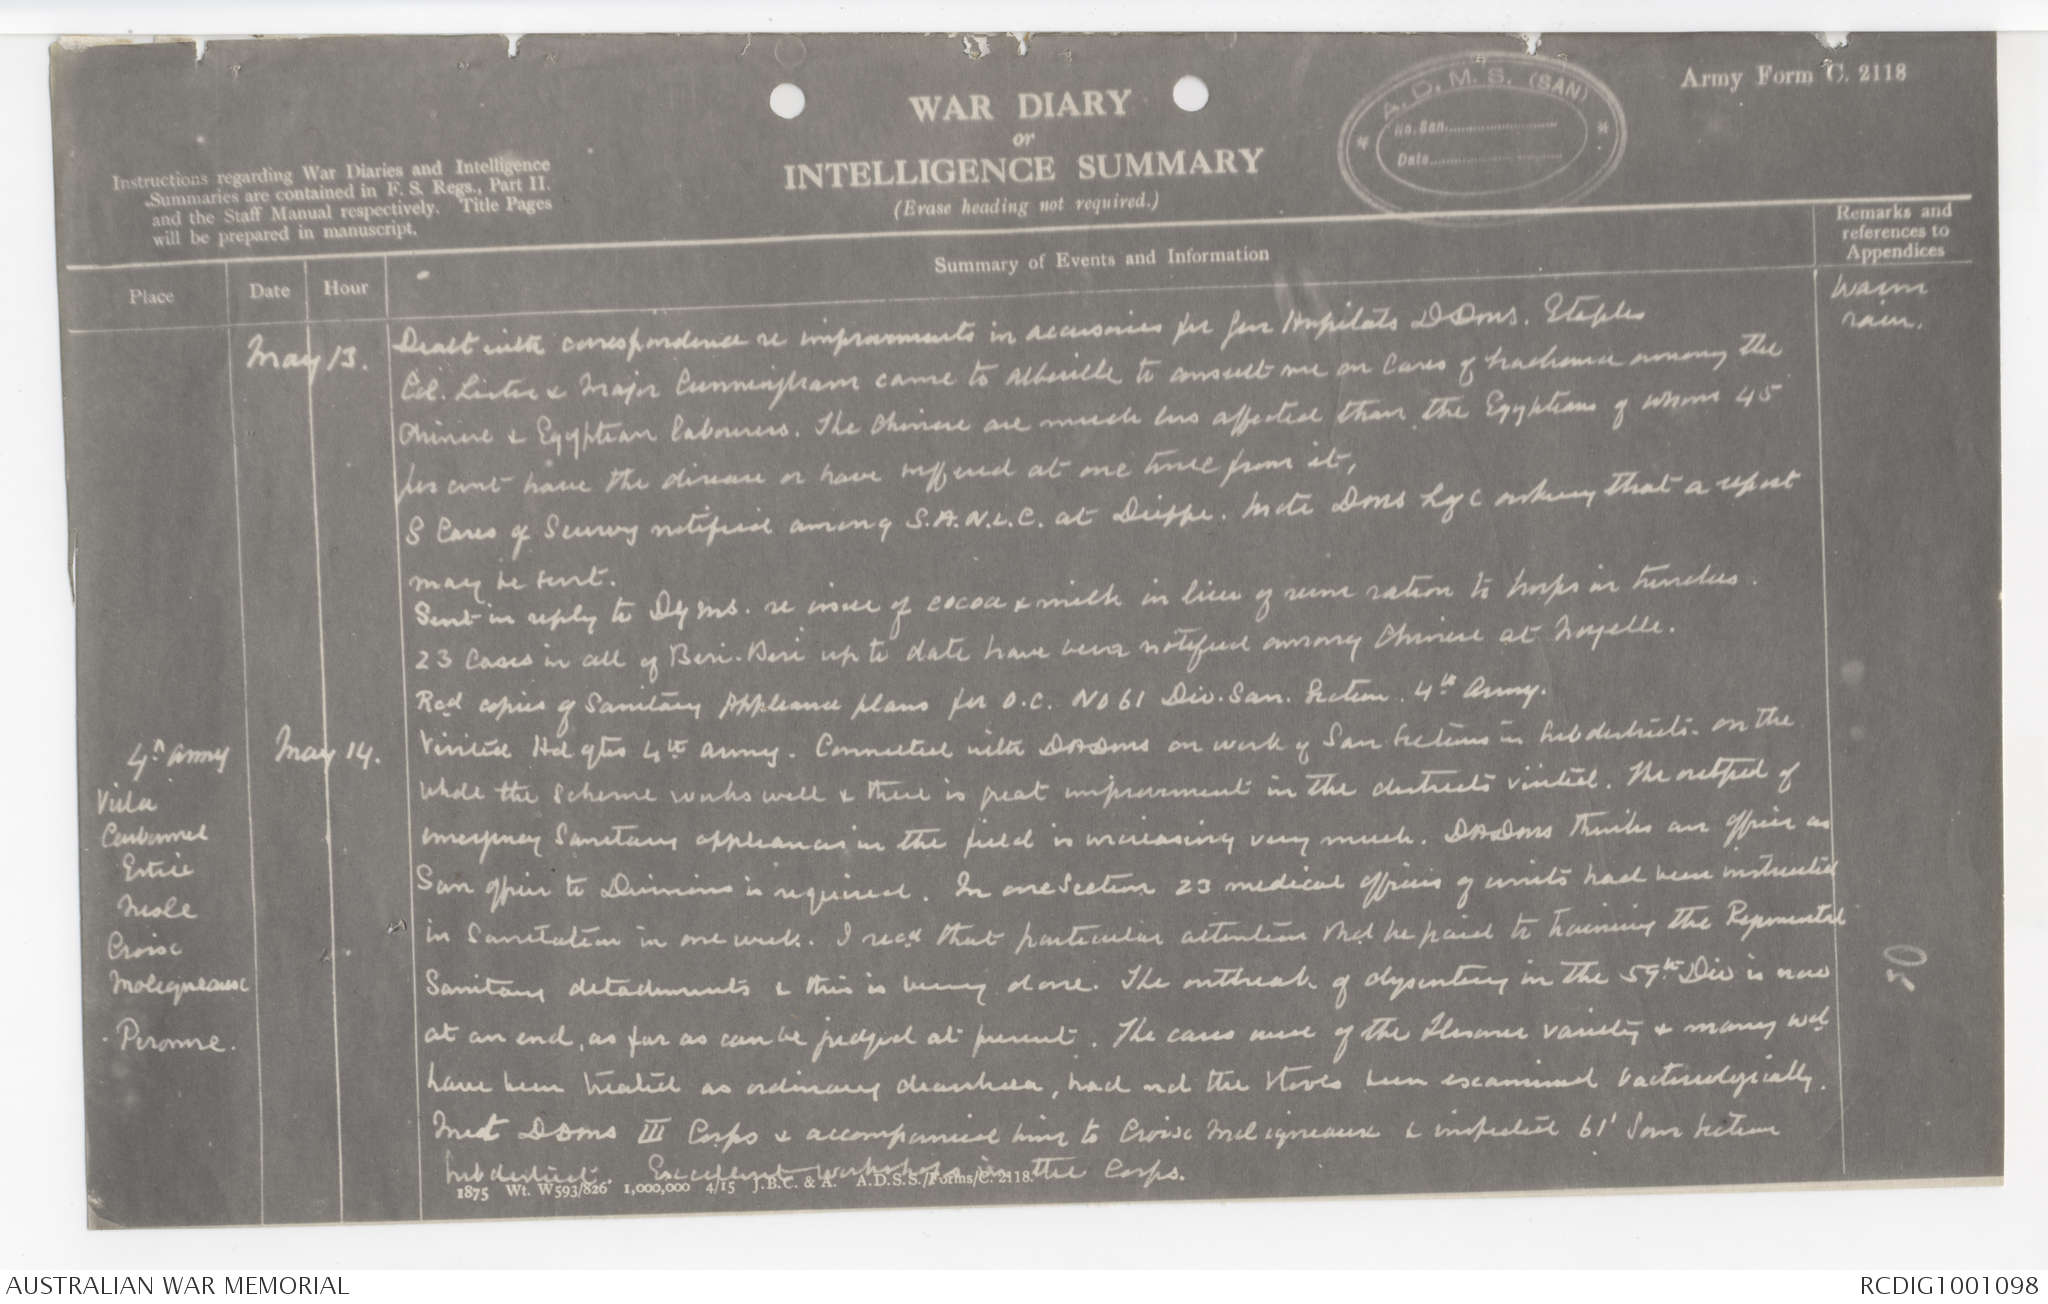 Army Form C. 2118
WAR DIARY
or
INTELLIGENCE SUMMARY
(Erase heading not required.)
A. D. M. S. (SAN)
No. San.
Date
Instructions regarding War Diaries and Intelligence
Summaries are contained in F. S. Regs., Part II.
and the Staff Manual respectively. Title Pages
will be prepared in manuscript.
Place
Date
Hour
Summary of Events and Information
Remarks and
references to
Appendices
May 13.
Dealt with correspondence re improvements in accessories for Gen Hospitals DDMS. Etaples
Col. Lister & Major Cunningham came to Abbeville to consult me on Cases of trachoma among the
Chinese & Egyptian labourers. The Chinese are much less affected than the Egyptians of whom 45
per cent have the disease or have suffered at one time from it,
8 Cases of Scurvy notified among S.A.N.L.C. at Dieppe. Wrote DDMS L of C asking that a report
may be sent.
Sent in reply to DGMS. re issue of cocoa & milk in lieu of rum ration to troops in trenches.
23 Cases in all of Beri-Beri up to date have been notified among Chinese at Noyelle.
Recd copies of Sanitary Appliance plans for O.C. No 61 Div. San. Section. 4th Army.
warm
rain.
4th Army
Villa
Carbonnel
Estrie
Nesle
Croise
Moligneaux
Peronne.
May 14.
Visited Hd qtrs 4th Army. Connected with DADMS on work of San Sections in Subdistricts. On the
whole the scheme works well & there is great improvement in the districts visited. The output of
emergency Sanitary appliances in the field is increasing very much. DADMS thinks an officer as
San officer to Divisions is required. In one Section 23 medical officers of units had been instructed
in Sanitation in one week. I recd that particular attention shd be paid to training the Regimental
Sanitary detachments & this is being done. The outbreak of dysentery in the 59th Div is now
at an end, as far as can be judged at present. The cases were of the Flexner variety & many wd
have been treated as ordinary diarrhoea, had not the stools been examined bacteriologically.
Met DDMS III Corps & accompanied him to Croise Moligneaux & inspected 61' San Section
Subdistrict. Excellent workshops in the Corps.
50
1875 Wt. W593/826 1,000,000 4/15 J.B.C. & A. A.D.S.S./Forms/C. 2118.
AUSTRALIAN WAR MEMORIAL
RCDIG1001098